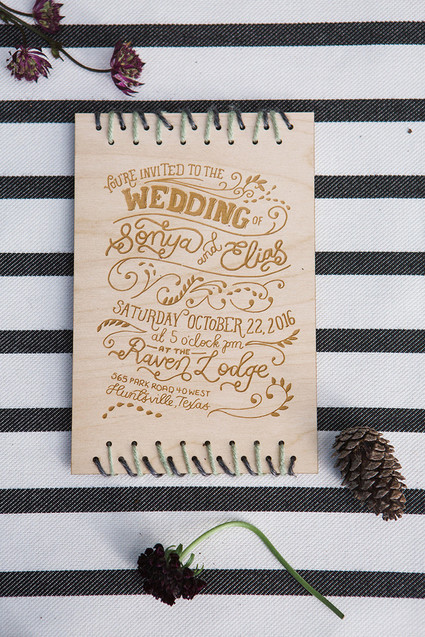 YOU'RE INVITED TO THE
WEDDING OF
Sonya and Elias
SATURDAY OCTOBER, 22, 2016
at 5 o'clock pm
AT THE
Raven Lodge
565 PARK ROAD 40 WEST
Huntsville, Texas